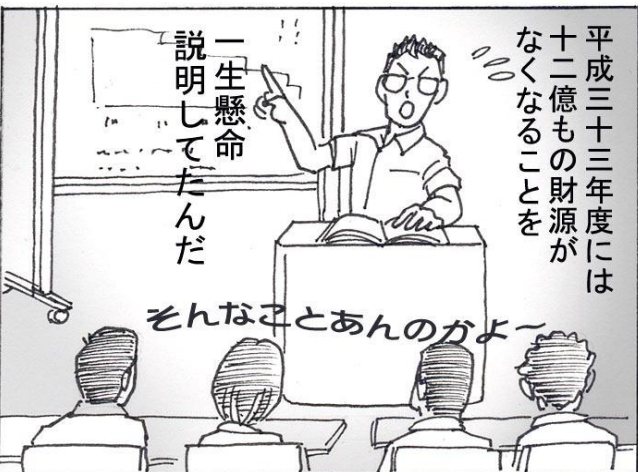 平成三十三年度には
十二億もの財源が
なくなることを
一生懸命
説明してたんだ
そんなことあんのかよ～